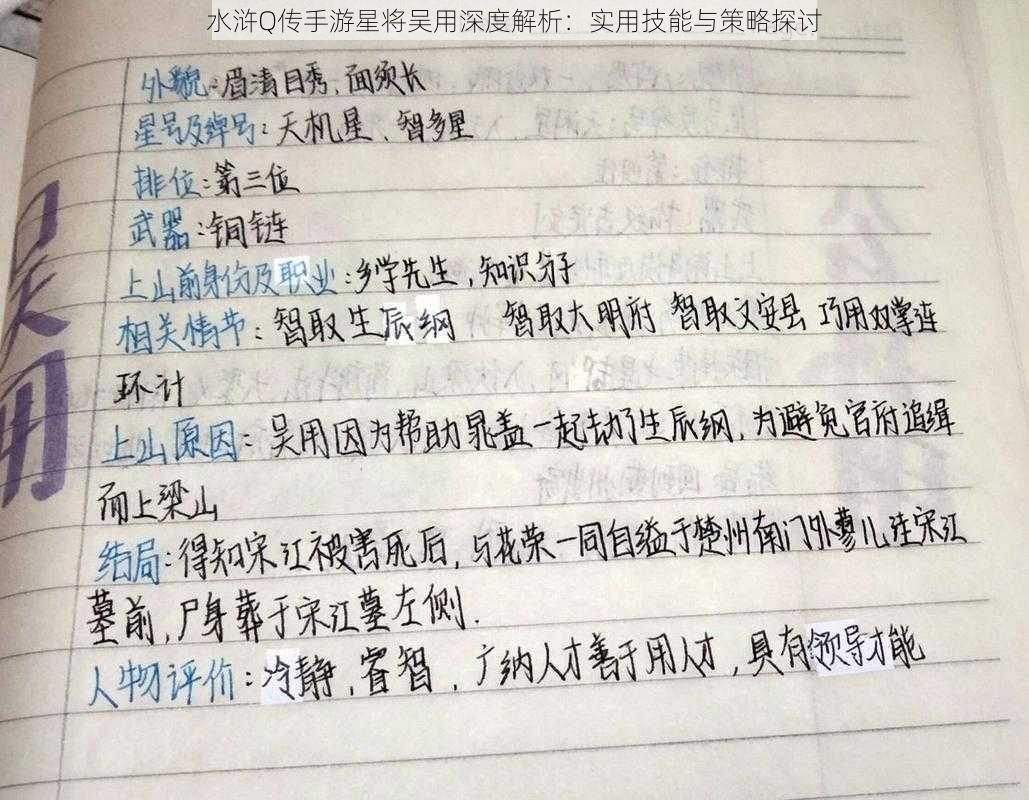 水浒Q传手游星将吴用深度解析：实用技能与策略探讨
吴用
外貌：眉清目秀，面须长
星号及绰号：天机星、智多星
排位：第三位
武器：铜链
上山前身份及职业：乡学先生，知识分子
相关情节：智取生辰纲 智取大明府 智取文安县 巧用双掌连
环计
上山原因：吴用因为帮助晁盖一起劫了生辰纲，为避免官府追缉
而上梁山
结局：得知宋江被害死后，与花荣一同自缢于楚州南门外蓼儿洼宋江
墓前，尸身葬于宋江墓左侧.
人物评价：冷静，睿智，广纳人才善于用人才，具有领导才能